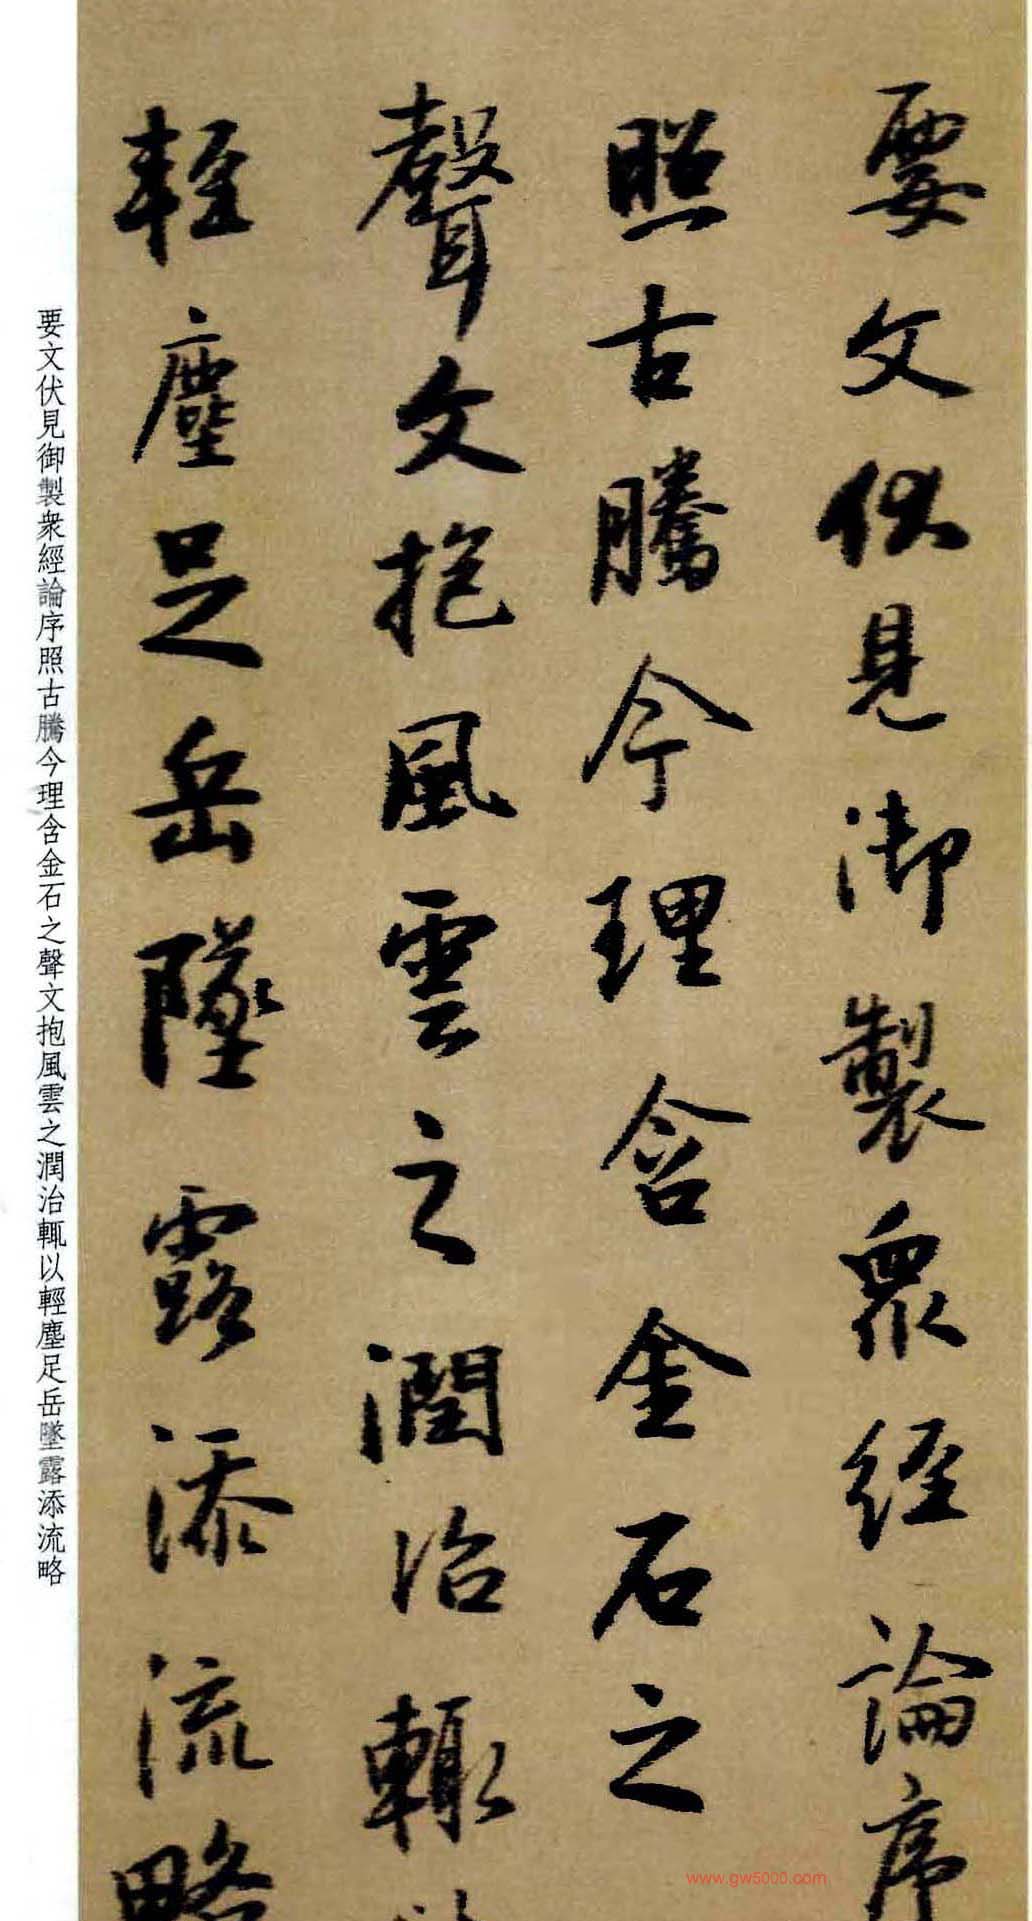 要文伏見御製衆經論序
照古騰今理含金石之
聲文抱風雲之潤治輒以
輕塵足岳墜露添流略
要文伏見御製衆經論序照古騰今理含金石之聲文抱風雲之潤治輒以輕塵足岳墜露添流略
www.gw5000.com